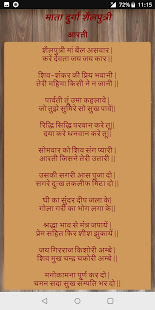 11:15
माता दुर्गा शैलपुत्री
आरती
शैलपुत्री मां बैल असवार|
करें देवता जय जय कार||
शिव-शंकर की प्रिय भवानी|
तेरी महिमा किसी ने न जानी||
पार्वती तूं उमा कहलावे|
जो तुझे सुमिरे सो सुख पावे||
रिद्धि सिद्धि परवान करे तू||
दया करे धनवान करे तू||
सोमवार को शिव संग प्यारी|
आरती जिसने तेरी उतारी||
उसकी सगरी आस पूजा दो|
सगरे दुःख तकलीफ मिटा दो||
घी का सुंदर दीप जला के|
गोला गरी का भोग लगा के||
श्रद्धा भाव से मंत्र जपायें|
प्रेम सहित फिर शीश झुकायें||
जय गिरराज किशोरी अम्बे|
शिव मुख चन्द्र चकोरी अम्बे||
मनोकामना पूर्ण कर दो|
चमन सदा सुख सम्पति भर दो||